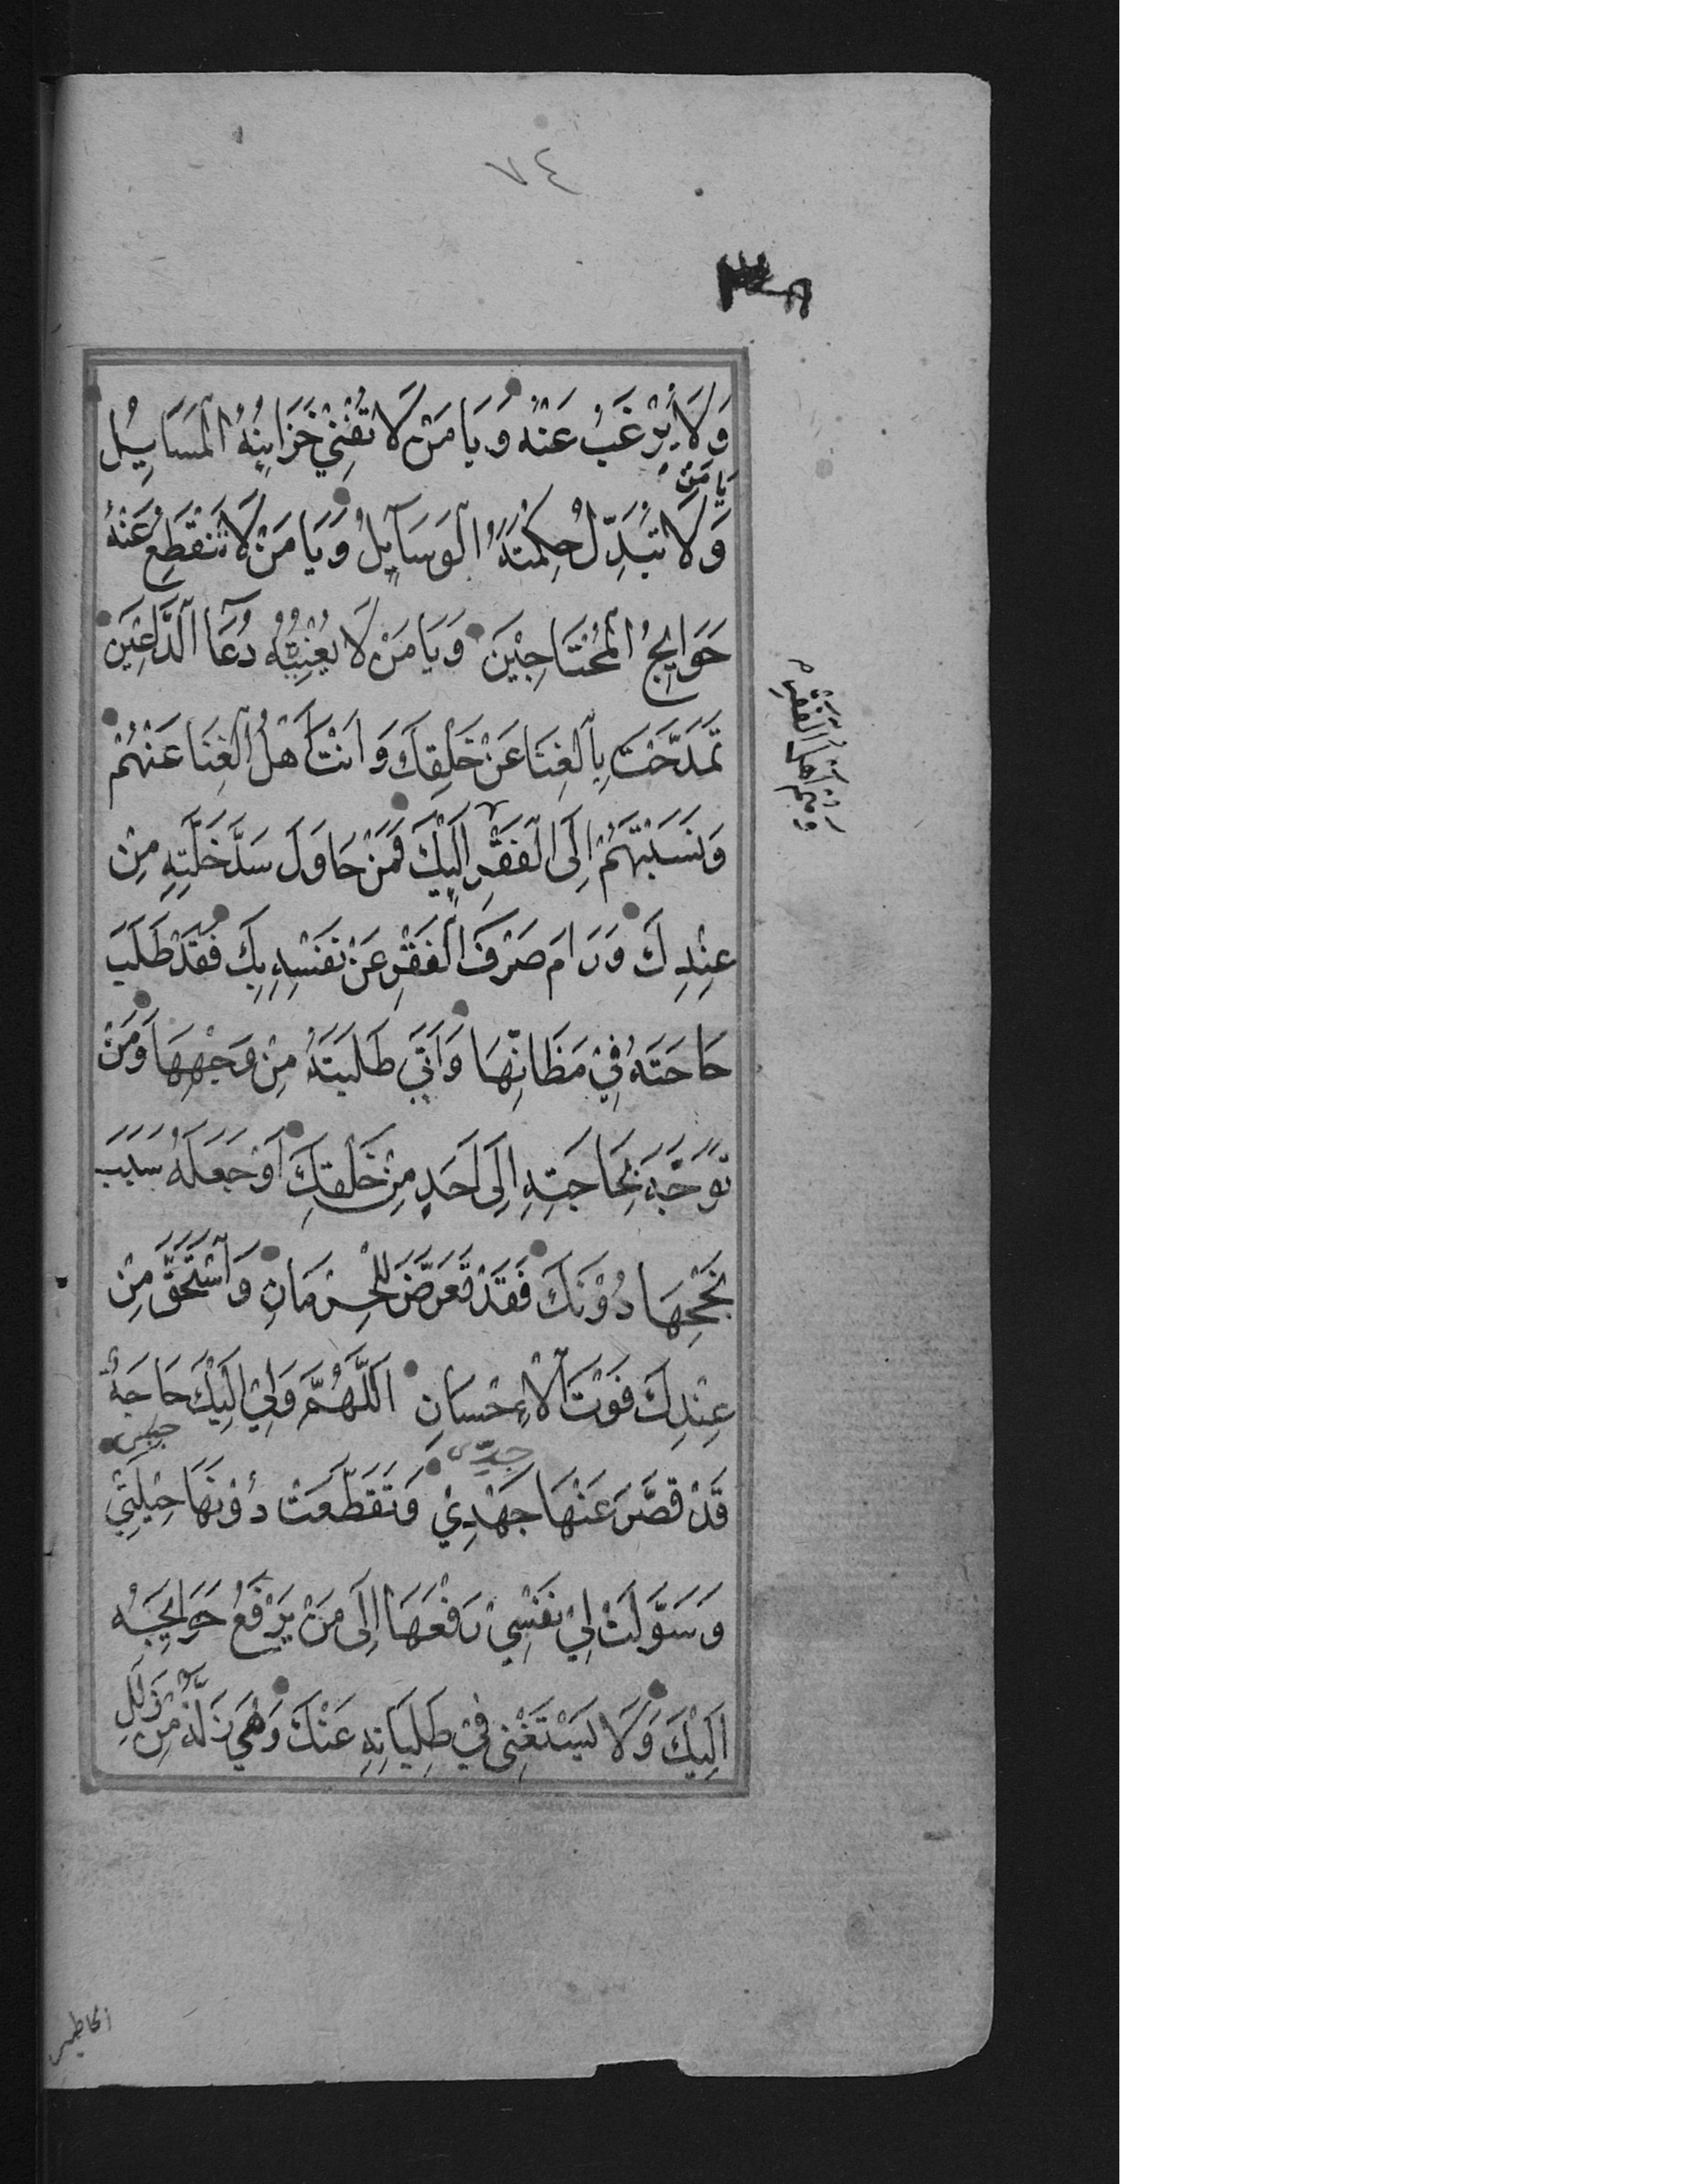 ٧٤
وَلَا يُرْغَبُ عَنْهُ وَيَا مَنْ لَا تُفْنِيْ خَزَايِنَهُ الْمَسَايِلُ
يَا مَنْ
وَلَا تُبَدِّلُ حِكْمَتَهُ الْوَسَآيِلُ وَيَا مَنْ لَا تَنْقَطِعُ عَنْهُ
حَوَايِجُ الْمُحْتَاجِيْنَ وَيَا مَنْ لَا يُعَنِّيْهِ دُعَآ الدَّاعِيْنَ
تَمَدَّحْتَ بِالْغِنَا عَنْ خَلْقِكَ وَاَنْتَ اَهْلُ الْغِنَا عَنْهُمْ
وَنَسَبْتَهُمْ اِلَى الْفَقْرِ اِلَيْكَ فَمَنْ حَاوَلَ سَدَّ خَلَّتِهِ مِنْ
عِنْدِكَ وَرَامَ صَرْفَ الْفَقْرِ عَنْ نَفْسِهِ بِكَ فَقَدْ طَلَبَ
حَاجَتَهُ فِيْ مَظَانِّهَا وَاَتَى طَلِبَتَهُ مِنْ وَجْهِهَا وَمَنْ
تَوَجَّهَ بِحَاجَتِهِ اِلَى اَحَدٍ مِنْ خَلْقِكَ اَوْ جَعَلَهُ سَبَبَ
نُجْحِهَا دُوْنَكَ فَقَدْ تَعَرَّضَ لِلْحِرْمَانِ وَاسْتَحَقَّ مِنْ
عِنْدِكَ فَوْتَ الْاِحْسَانِ اَللّٰهُمَّ وَلِيْ اِلَيْكَ حَاجَةٌ
قَدْ قَصَّرَ عَنْهَا جَهْدِيْ وَتَقَطَّعَتْ دُوْنَهَا حِيْلَتِيْ
وَسَوَّلَتْ لِيْ نَفْسِيْ رَفْعَهَا اِلَى مَنْ يَرْفَعُ حَوَايِجَهُ
اِلَيْكَ وَلَا يَسْتَغْنِى فِيْ طَلِبَاتِهِ عَنْكَ وَهِيَ زَلَّةٌ مِنْ زَلَلِ
وَنَسَبْتَهُمْ اِلَى الْفَقْرِ وَهُمْ اَهْلُ الْفَقْرِ
الخاطئين